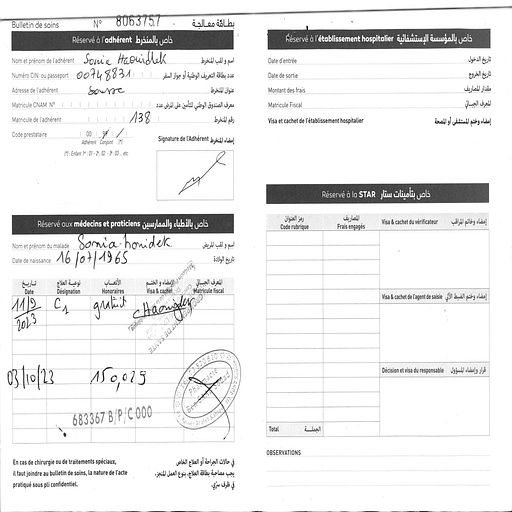 Bulletin de soins N° 8063757 بطاقة معالجة
Réservé à l'adhérent خاص بالمنخرط
Nom et prénom de l'adhérent Sonia Haouidek اسم و لقب المنخرط
Numéro CIN ou passeport 00748831 عدد بطاقة التعريف الوطنية أو جواز السفر
Adresse de l'adhérent Sousse عنوان المنخرط
Matricule CNAM N° معرف الصندوق الوطني للتأمين على المرض عدد
Matricule de l'adhérent 138 رقم المنخرط
Code prestataire 00 99 (*)
Adhérent Conjoint (*)
(*) : Enfant 1er : 01 - 2e : 02 - 3e : 03 ... etc
Signature de l'Adhérent إمضاء المنخرط
Réservé aux médecins et praticiens خاص بالأطباء والممارسين
Nom et prénom du malade Sonia houidek اسم و لقب المريض
Date de naissance 16/07/1965 تاريخ الولادة
تاريخ نوعية العلاج الأتعاب الإمضاء و الختم المعرف الجبائي
Date Désignation Honoraires Visa & cachet Matricule fiscale
11/9/2023 C1 gratuit
03/10/23 150,029
683367 B/P/C 000
En cas de chirurgie ou de traitements spéciaux,
il faut joindre au bulletin de soins, la nature de l'acte
pratiqué sous pli confidentiel.
في حالات الجراحة أو العلاج الخاص
يجب مصاحبة بطاقة العلاج، بنوع العمل المنجز،
في ظرف سري.
Réservé à l'établissement hospitalier خاص بالمؤسسة الإستشفائية
Date d'entrée تاريخ الدخول
Date de sortie تاريخ الخروج
Montant des frais مقدار المصاريف
Matricule Fiscal المعرف الجبائي
Visa et cachet de l'établissement hospitalier إمضاء وختم المستشفى أو المصحة
Réservé à la STAR خاص بتأمينات ستار
رمز العنوان المصاريف
Code rubrique Frais engagés
Visa & cachet du vérificateur إمضاء وخاتم المراقب
Visa & cachet de l'agent de saisie إمضاء وختم الضبط الآلي
Décision et visa du responsable قرار وإمضاء المسؤول
Total الجملة
OBSERVATIONS